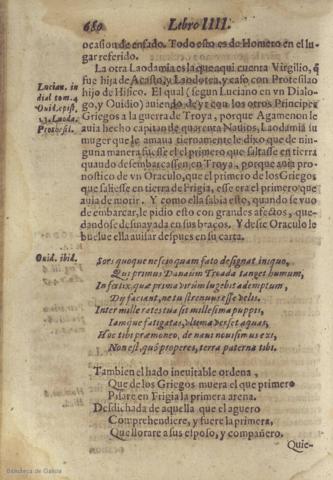 680 Libro IIII.
ocasion de enfado. Todo esto es de Homero en el lu-
gar referido.
La otra Laodamia es la que aqui cuenta Virgilio, q̃
fue hija de Acasto, y Laodotea, y caso con Protesilao
Lucian. in hijo de Hifico. El qual (segun Luciano en vn Dialo-
dial tom. 4 go, y Ouidio) auiendo de yr con los otros Principes
Ouid. epist. Griegos a la guerra de Troya, porque Agamenon le
13. Laoda. auia hecho capitan de quarenta Nauios, Laodamia su
Prothesil. muger que le amaua tiernamente le dixo que de nin-
guna manera fuesse el el primero que saltasse en tierra
quando desembarcassen en Troya, porque auia pro-
nostico de vn Oraculo, que el primero de los Griegos
que saliesse en tierra de Frigia, esse era el primero que
auia de morir. Y como ella sabia esto, quando se vuo
de embarcar, le pidio esto con grandes afectos, que-
dandose desmayada en sus braços. Y desse Oraculo le
buelue ella auisar despues en su carta.
Ouid. ibid. Sors quoque nescio quam fato designat iniquo,
Qui primus Danaum Troada tanget humum,
Infœlix, quæ prima virum lugebit ademptum,
Dij faciant, ne tu strenuus esse velis.
Inter mille rates tua sit millesima puppis,
Iamque fatigatas, vltima verset aquas,
Hoc tibi præmoneo, de naui nouissimus exi,
Non est, quò properes, terra paterna tibi.
Tambien el hado ineuitable ordena,
Que de los Griegos muera el que primero
Pisare en Frigia la primera arena.
Desdichada de aquella que el aguero
Comprehendiere, y fuere la primera,
Que llorare a su esposo, y compañero.
Quie-
Biblioteca de Galicia